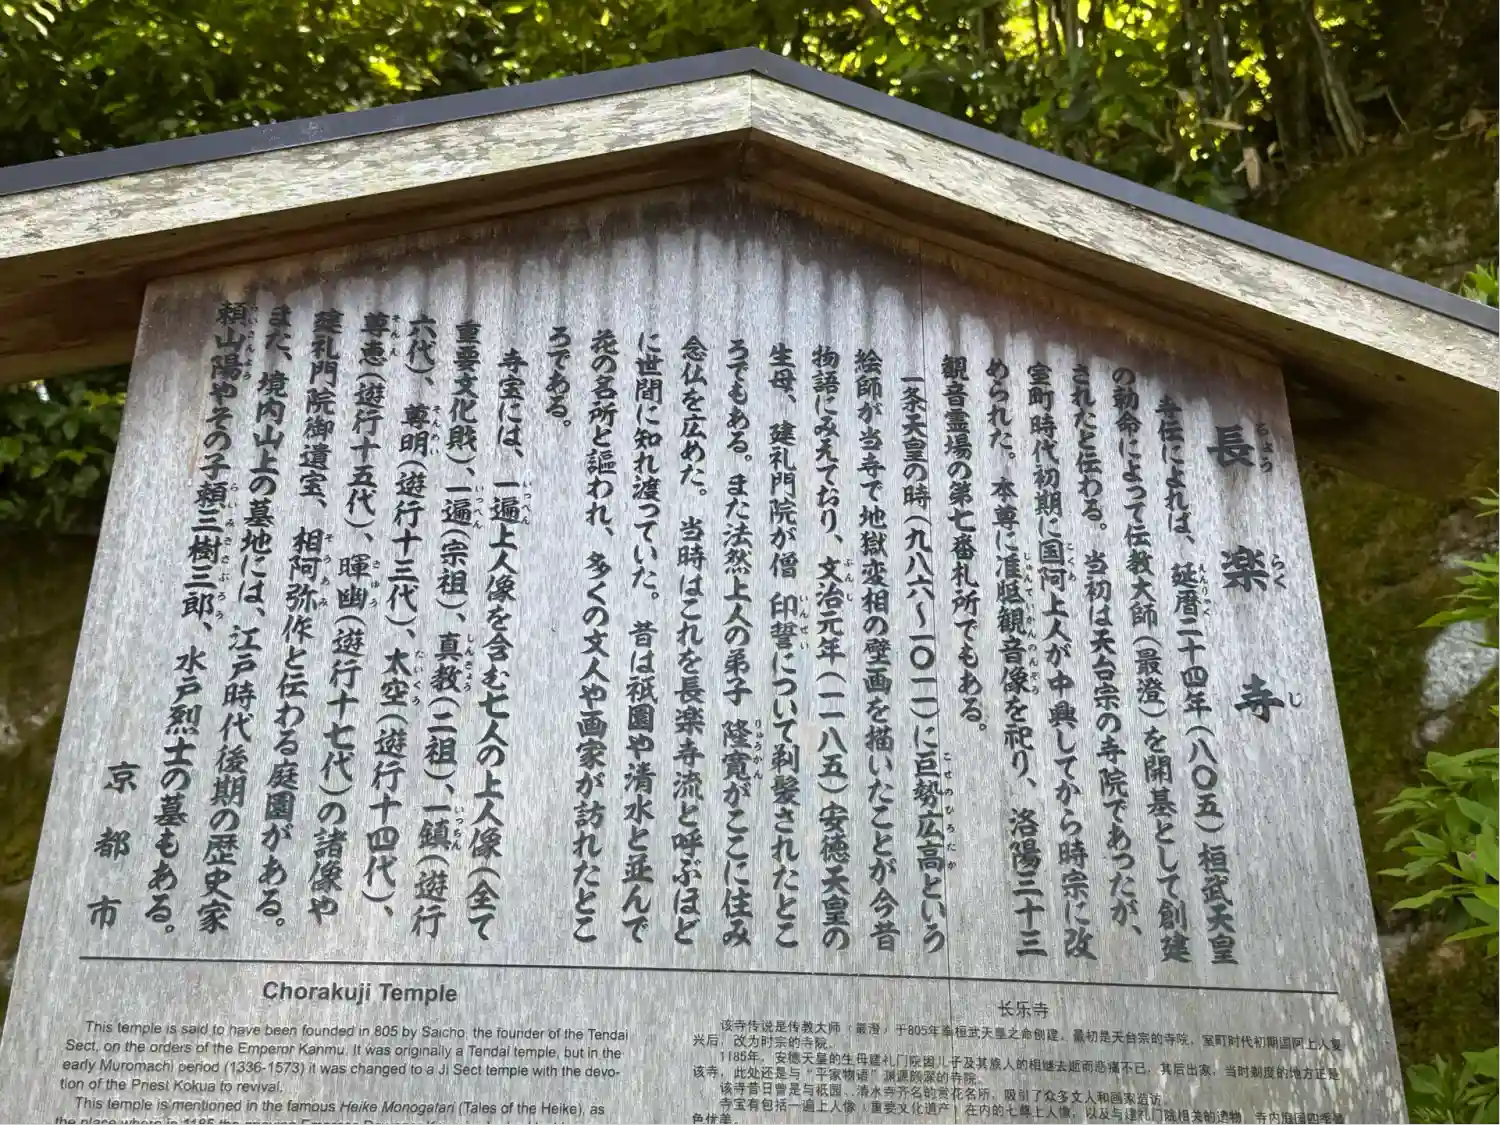 長楽寺
ちょう らく じ
寺伝によれば、延暦二十四年(八〇五)桓武天皇
の勅命によって伝教大師(最澄)を開基として創建
されたと伝わる。当初は天台宗の寺院であったが、
室町時代初期に国阿上人が中興してから時宗に改
められた。本尊に准胝観音像を祀り、洛陽三十三
観音霊場の第七番札所でもある。
一条天皇の時(九八六〜一〇一一)に巨勢広高という
絵師が当寺で地獄変相の壁画を描いたことが今昔
物語にみえており、文治元年(一一八五)安徳天皇の
生母、建礼門院が僧印誓について剃髪されたとこ
ろでもある。また法然上人の弟子隆寛がここに住み
念仏を広めた。当時はこれを長楽寺流と呼ぶほど
に世間に知れ渡っていた。昔は祇園や清水と並んで
花の名所と謳われ、多くの文人や画家が訪れたとこ
ろである。
寺宝には、一遍上人像を含む七人の上人像(全て
重要文化財)、一遍(宗祖)、真教(二祖)、一鎮(遊行
六代)、尊明(遊行十三代)、太空(遊行十四代)、
尊恵(遊行十五代)、暉幽(遊行十七代)の諸像や
建礼門院御遺宝、相阿弥作と伝わる庭園がある。
また、境内山上の墓地には、江戸時代後期の歴史家
頼山陽やその子頼三樹三郎、水戸烈士の墓もある。
京都市
Chorakuji Temple
This temple is said to have been founded in 805 by Saicho, the founder of the Tendai
Sect, on the orders of the Emperor Kanmu. It was originally a Tendai temple, but in the
early Muromachi period (1336-1573) it was changed to a Ji Sect temple with the devo-
tion of the Priest Kokua to revival.
This temple is mentioned in the famous Heike Monogatari (Tales of the Heike), as
长乐寺
该寺传说是传教大师(最澄)于805年奉桓武天皇之命创建。最初是天台宗的寺院,室町时代初期国阿上人复
兴后,改为时宗的寺院。
1185年,安德天皇的生母建礼门院因儿子及其族人的相继去逝而悲痛不已,其后出家,当时剃度的地方正是
该寺,此处还是与“平家物语”渊源颇深的寺院。
该寺昔日曾是与祇园、清水寺齐名的赏花名所,吸引了众多文人和画家造访。
寺宝有包括一遍上人像(重要文化遗产)在内的七尊上人像,以及与建礼门院相关的遗物,寺内庭园四季景
色优美。